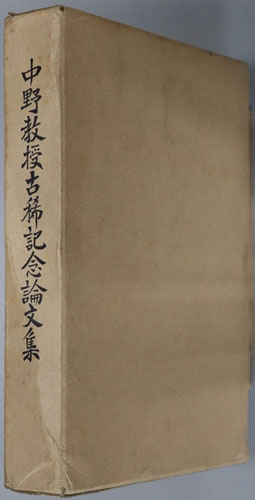 中野教授古稀記念論文集